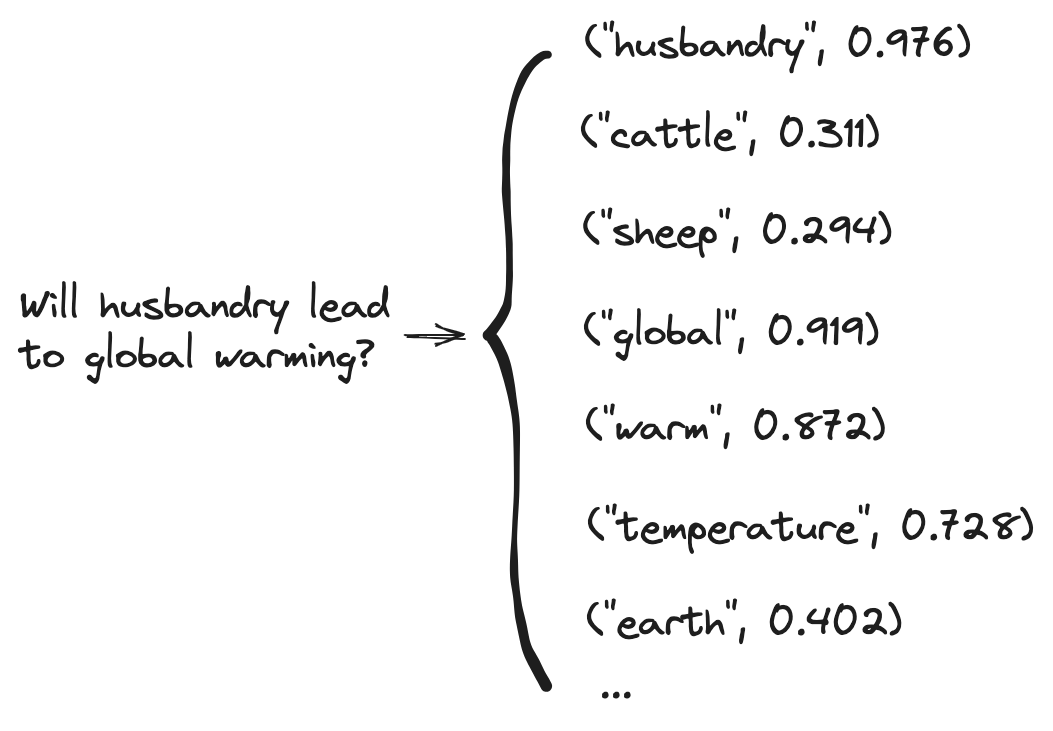 Will husbandry lead
to global warming?
("husbandry", 0.976)
("cattle", 0.311)
("sheep", 0.294)
("global", 0.919)
("warm", 0.872)
("temperature", 0.728)
("earth", 0.402)
...